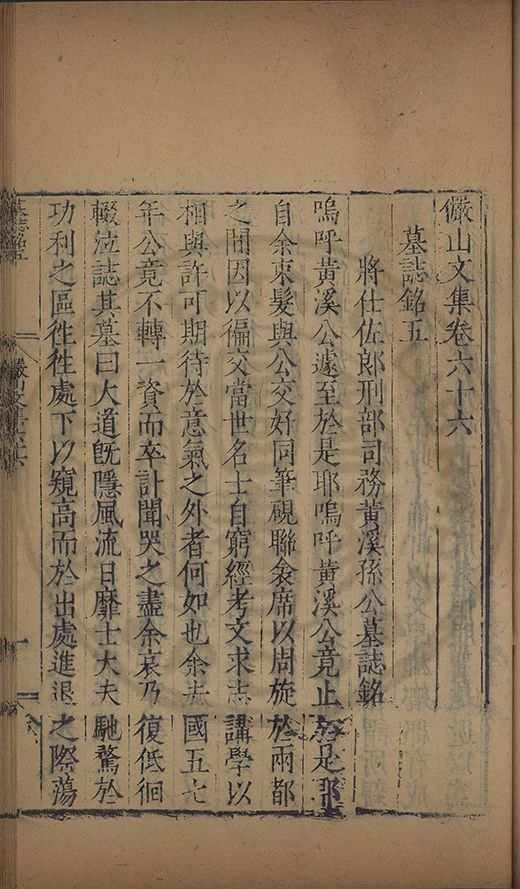 儼山文集卷六十六
墓誌銘五
將仕佐郎刑部司務黃溪孫公墓誌銘
嗚呼黃溪公遽至於是耶嗚呼黃溪公竟止於是耶
自余束髮與公交好同筆硯聯衾席以周旋於兩都
之間因以徧交當世名士自窮經考文求志講學以
相與許可期待於意氣之外者何如也余去國五七
年公竟不轉一資而卒訃聞哭之盡余哀乃復低徊
輟泣誌其墓曰大道旣隱風流日靡士大夫馳騖於
功利之區徃徃處下以窺高而於出處進退之際蕩
墓誌銘五
儼山文集六十六
一